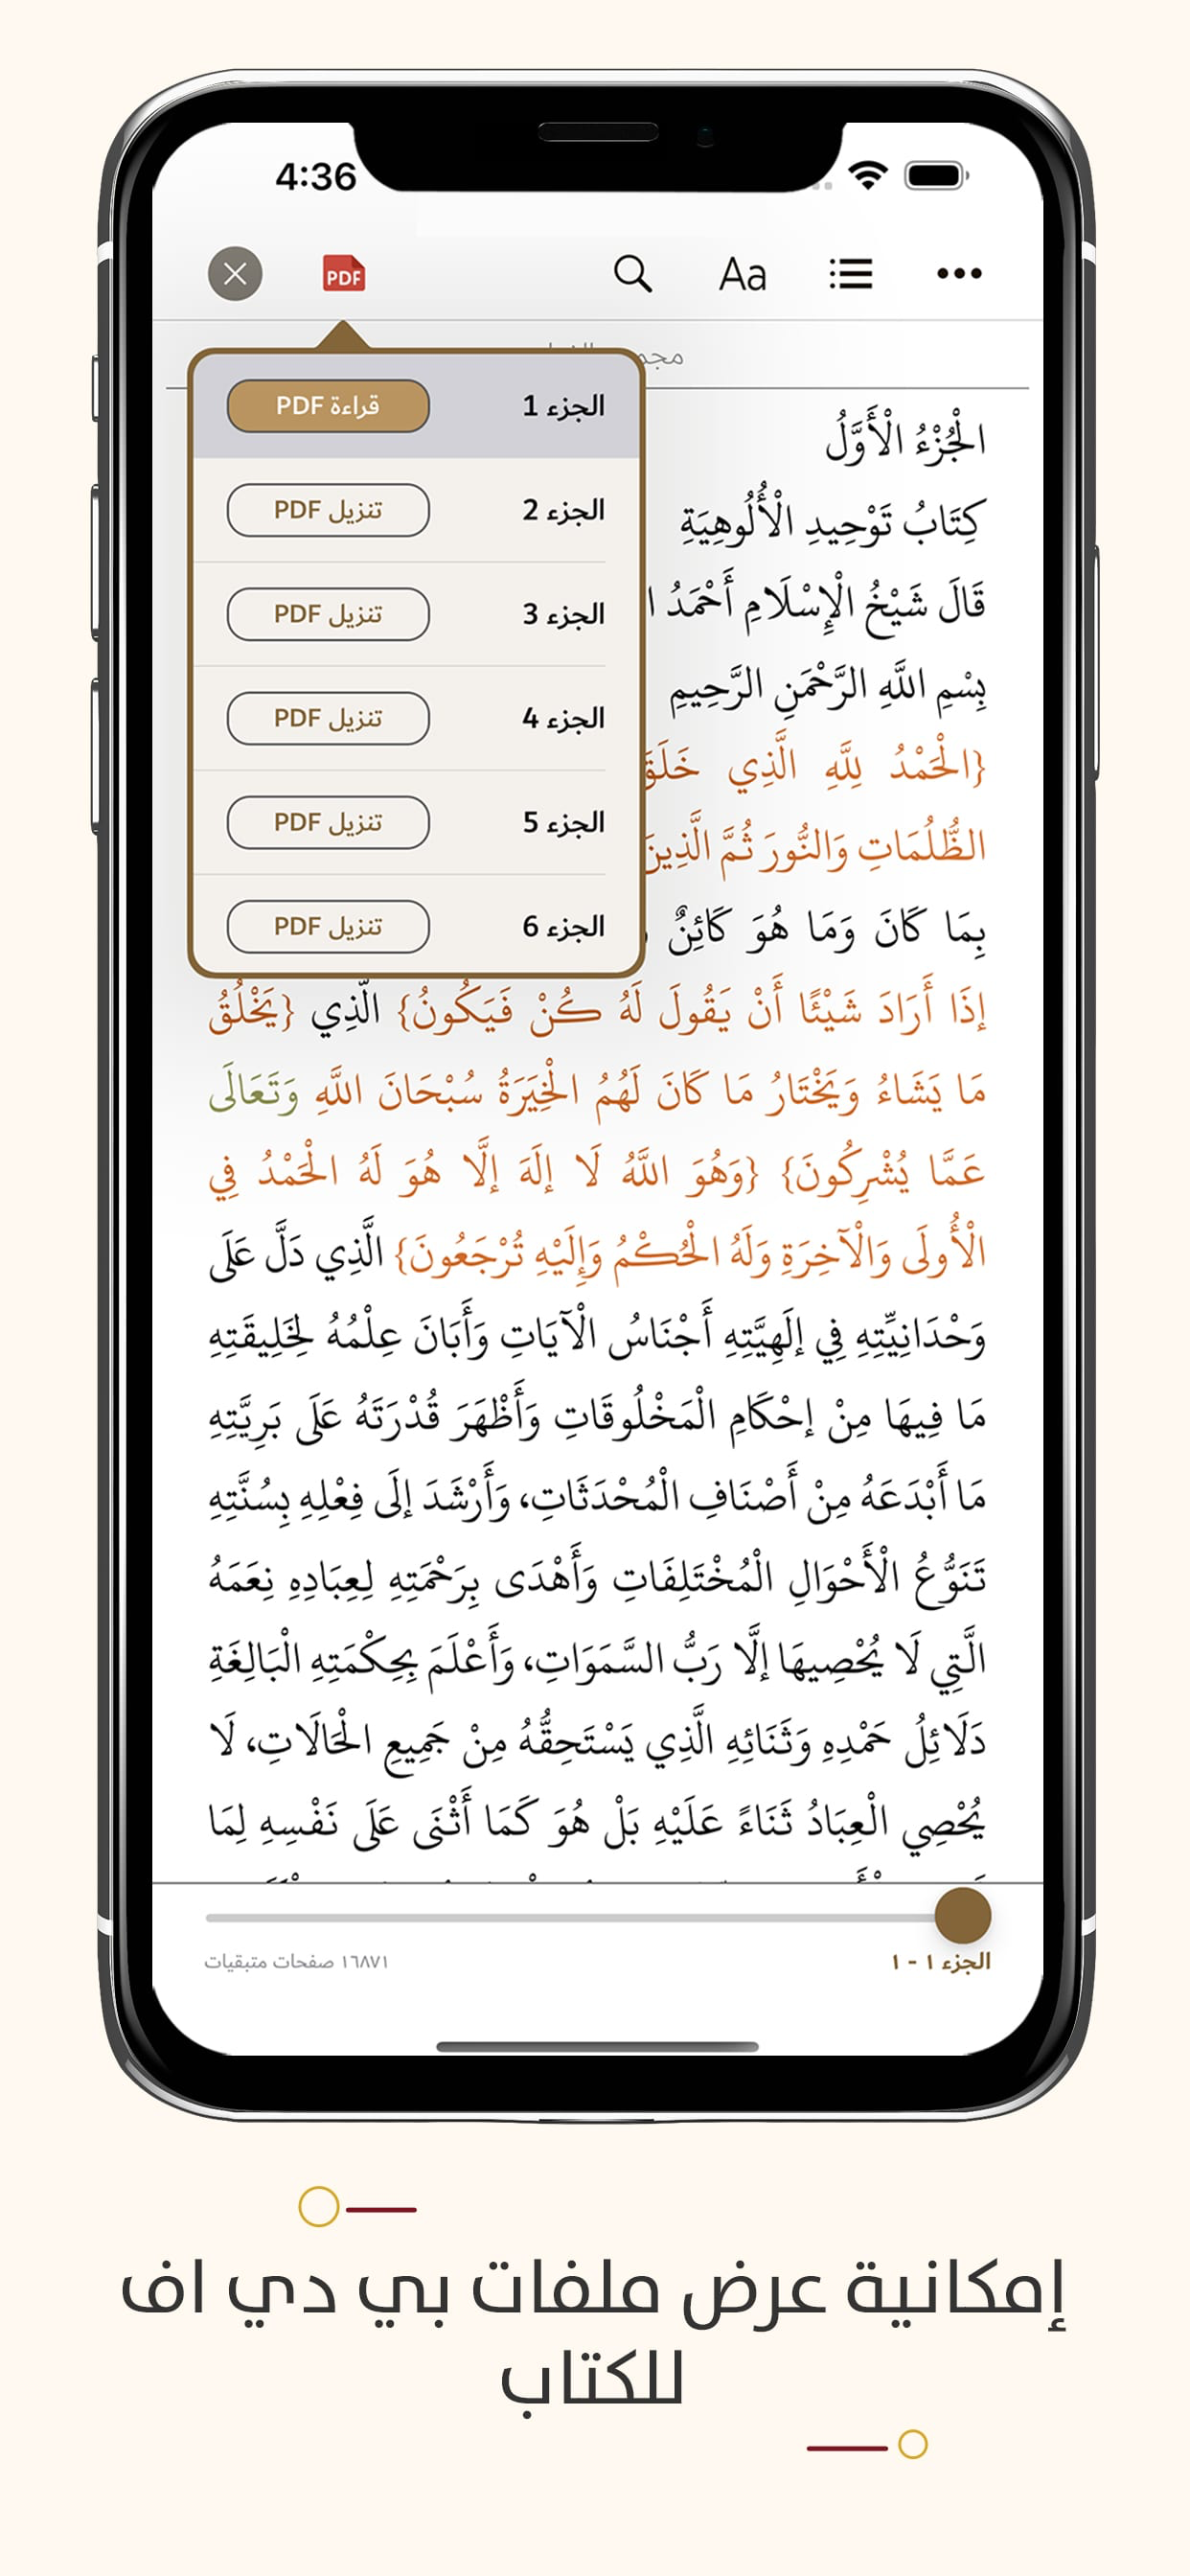 4:36
PDF
Aa
الجزء 1 قراءة PDF
الجزء 2 تنزيل PDF
الجزء 3 تنزيل PDF
الجزء 4 تنزيل PDF
الجزء 5 تنزيل PDF
الجزء 6 تنزيل PDF
الْجُزْءُ الْأَوَّلُ
كِتَابُ تَوْحِيدِ الْأُلُوهِيَةِ
قَالَ شَيْخُ الْإِسْلَامِ أَحْمَدُ
بِسْمِ اللَّهِ الرَّحْمَنِ الرَّحِيمِ
{الْحَمْدُ لِلَّهِ الَّذِي خَلَقَ
الظُّلُمَاتِ وَالنُّورَ ثُمَّ الَّذِينَ
بِمَا كَانَ وَمَا هُوَ كَائِنٌ
إذَا أَرَادَ شَيْئًا أَنْ يَقُولَ لَهُ كُنْ فَيَكُونُ} الَّذِي {يَخْلُقُ
مَا يَشَاءُ وَيَخْتَارُ مَا كَانَ لَهُمُ الْخِيَرَةُ سُبْحَانَ اللَّهِ وَتَعَالَى
عَمَّا يُشْرِكُونَ} {وَهُوَ اللَّهُ لَا إلَهَ إلَّا هُوَ لَهُ الْحَمْدُ فِي
الْأُولَى وَالْآخِرَةِ وَلَهُ الْحُكْمُ وَإِلَيْهِ تُرْجَعُونَ} الَّذِي دَلَّ عَلَى
وَحْدَانِيِّتِهِ فِي إلَهِيَّتِهِ أَجْنَاسُ الْآيَاتِ وَأَبَانَ عِلْمُهُ لِخَلِيقَتِهِ
مَا فِيهَا مِنْ إحْكَامِ الْمَخْلُوقَاتِ وَأَظْهَرَ قُدْرَتَهُ عَلَى بَرِيَّتِهِ
مَا أَبْدَعَهُ مِنْ أَصْنَافِ الْمُحْدَثَاتِ، وَأَرْشَدَ إلَى فِعْلِهِ بِسُنَّتِهِ
تَنَوُّعُ الْأَحْوَالِ الْمُخْتَلِفَاتِ وَأَهْدَى بِرَحْمَتِهِ لِعِبَادِهِ نِعَمَهُ
الَّتِي لَا يُحْصِيهَا إلَّا رَبُّ السَّمَوَاتِ، وَأَعْلَمَ بِحِكْمَتِهِ الْبَالِغَةِ
دَلَائِلُ حَمْدِهِ وَثَنَائِهِ الَّذِي يَسْتَحِقُّهُ مِنْ جَمِيعِ الْحَالَاتِ، لَا
يُحْصِي الْعِبَادُ ثَنَاءً عَلَيْهِ بَلْ هُوَ كَمَا أَثْنَى عَلَى نَفْسِهِ لِمَا
الجزء ١ - ١
١٦٨٧١ صفحات متبقيات
إمكانية عرض ملفات بي دي اف
للكتاب